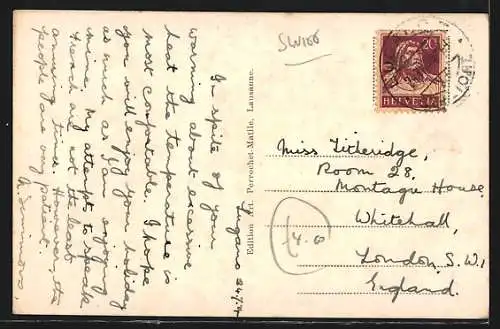 SWISS
20
HELVETIA
Lugano 24/7/
In spite of your
warning about excessive
heat the temperature is
most comfortable. I hope
you will enjoy your holiday
as much as I am enjoying
mine. My attempts to speak
French are not the least
amusing time. However, the
people are very patient.
Edition Art. Perrochet-Matile, Lausanne.
Miss Titheridge,
Room 28,
Montagu House,
Whitehall,
London S.W.1
England.